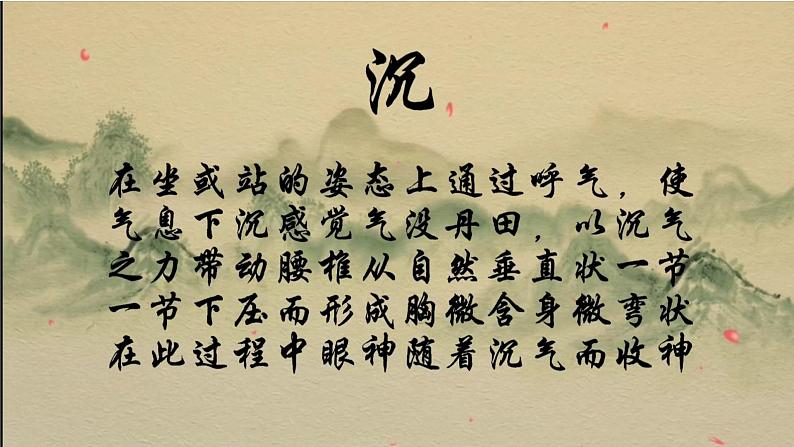 沉
在坐或站的姿态上通过呼气，使
气息下沉感觉气没丹田，以沉气
之力带动腰椎从自然垂直状一节
一节下压而形成胸微含身微弯状
在此过程中眼神随着沉气而收神